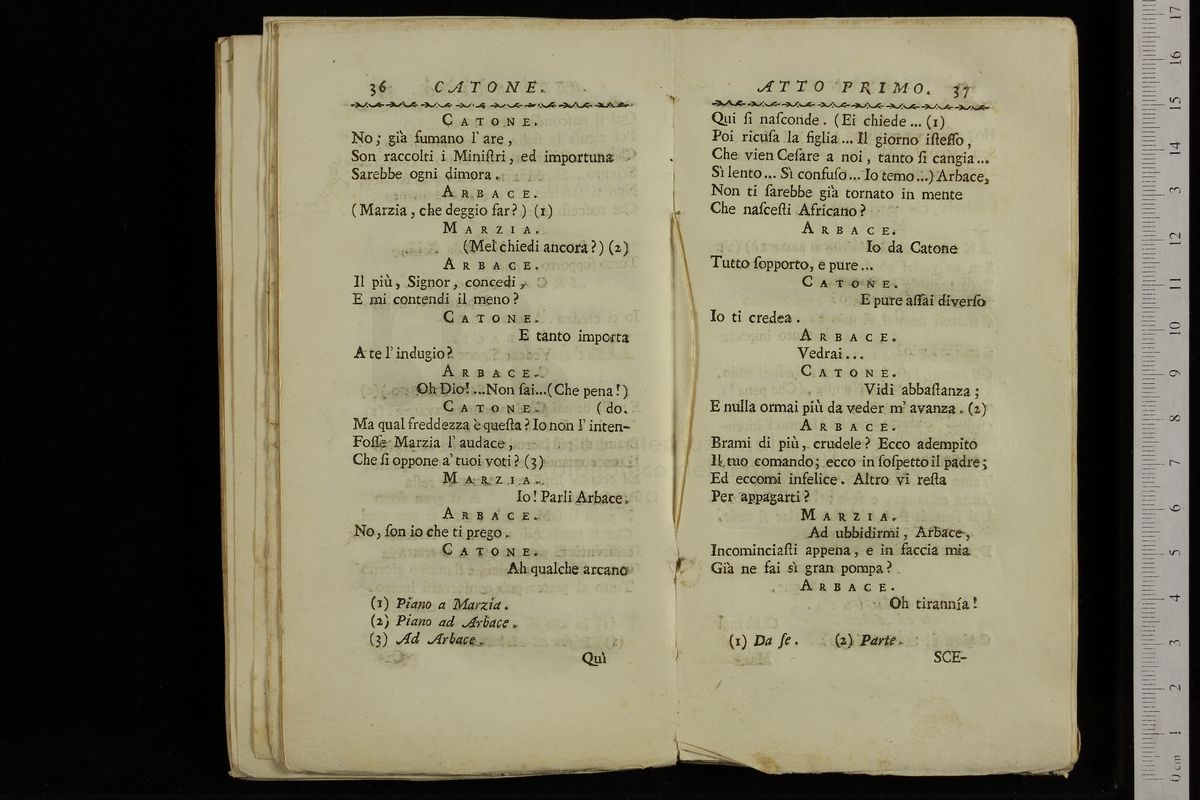 36 CATONE.
CATONE.
No; già fumano l'are,
Son raccolti i Miniſtri, ed importuna
Sarebbe ogni dimora.
ARBACE.
(Marzia, che deggio far?) (1)
MARZIA.
(Mel chiedi ancora?) (2)
ARBACE.
Il più, Signor, concedi,
E mi contendi il meno?
CATONE.
E tanto importa
A te l'indugio?
ARBACE.
Oh Dio!...Non ſai...(Che pena!)
CATONE. (do.
Ma qual freddezza è queſta? Io non l'inten-
Foſſe Marzia l'audace,
Che ſi oppone a' tuoi voti? (3)
MARZIA.
Io! Parli Arbace.
ARBACE.
No, ſon io che ti prego.
CATONE.
Ah qualche arcano
(1) Piano a Marzia.
(2) Piano ad Arbace.
(3) Ad Arbace.
Quì
ATTO PRIMO. 37
Qui ſi naſconde. (Ei chiede... (1)
Poi ricuſa la figlia... Il giorno iſteſſo,
Che vien Ceſare a noi, tanto ſi cangia...
Sì lento... Sì confuſo... Io temo...) Arbace,
Non ti ſarebbe già tornato in mente
Che naſceſti Africano?
ARBACE.
Io da Catone
Tutto ſopporto, e pure...
CATONE.
E pure aſſai diverſo
Io ti credea.
ARBACE.
Vedrai...
CATONE.
Vidi abbaſtanza;
E nulla ormai più da veder m'avanza. (2)
ARBACE.
Brami di più, crudele? Ecco adempito
Il tuo comando; ecco in ſoſpetto il padre;
Ed eccomi infelice. Altro vi reſta
Per appagarti?
MARZIA.
Ad ubbidirmi, Arbace,
Incominciaſti appena, e in faccia mia
Già ne fai sì gran pompa?
ARBACE.
Oh tirannía!
(1) Da ſe. (2) Parte.
SCE-
0 cm 1 2 3 4 5 6 7 8 9 10 11 12 13 14 15 16 17